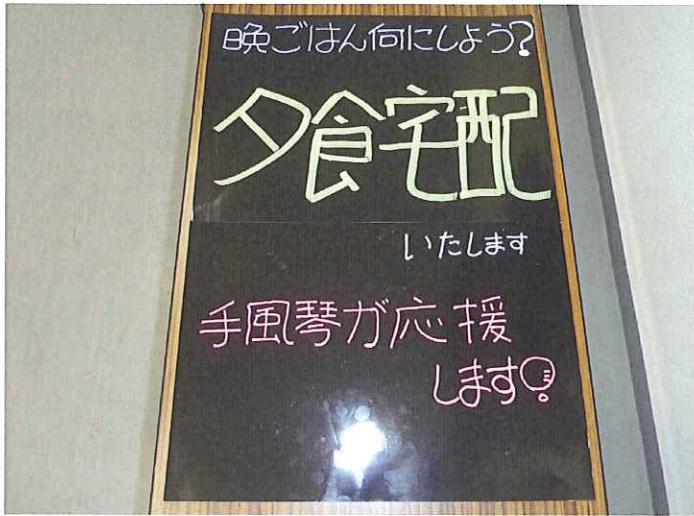 晩ごはん何にしよう?
夕食宅配
いたします
手風琴が応援
します!